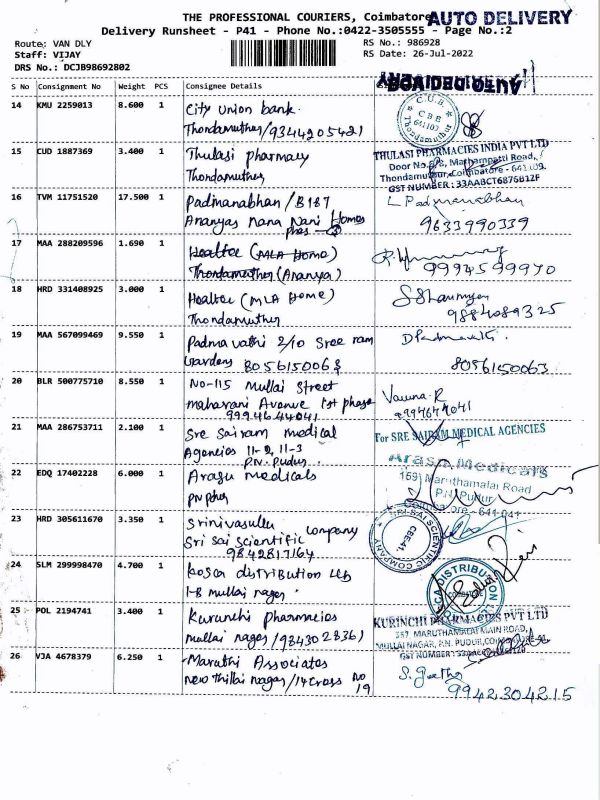 THE PROFESSIONAL COURIERS, Coimbatore
AUTO DELIVERY
Delivery Runsheet - P41 - Phone No.:0422-3505555 - Page No.:2
Route: VAN DLY
RS No.: 986928
Staff: VIJAY
RS Date: 26-Jul-2022
DRS No.: DCJB98692802
S No Consignment No Weight PCS Consignee Details
AUTO DELIVERY
14 KMU 2259013 8.600 1 City Union bank.
Thondamuther/9344205421
C.U.B.
CBE
641109
Thondamuthur
15 CUD 1887369 3.400 1 Thulasi pharmacy
Thondamuther
THULASI PHARMACIES INDIA PVT LTD
Mathampatti Road,
Thondamuthur, Coimbatore - 641109.
GST NUMBER : 33AABCT6876B1ZF
16 TVM 11751520 17.500 1 Padmanabhan / B187
Ananyas Nana Nani Homes
L Padmanabhan
9633990339
17 MAA 288209596 1.690 1 Healtee (MLA Home)
Thondamuther (Ananya)
9994599970
18 HRD 331408925 3.000 1 Healtee (MLA Home)
Thondamuther
9884089325
19 MAA 567099469 9.550 1 Padmavathi 2/10 Sree ram
Gardens 8056150063
8056150063
20 BLR 500775710 8.550 1 No-115 Mullai Street
maharani Avenue 1st phase
9994644041
21 MAA 286753711 2.100 1 Sre Sairam medical
Agencies 11-2, 11-3
P.N. pudur.
For SRE SAIRAM MEDICAL AGENCIES
22 EDQ 17402228 6.000 1 Arasu medicals
Arasu Medicals
159, Maruthamalai Road
P.N. Pudur
Coimbatore - 641 041
23 HRD 305611670 3.350 1 Srinivasullu
Company
Sri sai scientific
9842817164
SRI SAI SCIENTIFIC COMPANY
CBE-41.
24 SLM 299998470 4.700 1 Kosca distribution Llp
1-B mullai nagar.
DISTRIBUTION
25 POL 2194741 3.400 1 Kurinchi Pharmacies
mullai nagar/9843028361
KURINCHI PHARMACIES PVT LTD
357, MARUTHAMALAI MAIN ROAD,
MULLAI NAGAR, P.N. PUDUR,
GST NUMBER:
26 VJA 4678379 6.250 1 Maruthi Associates
New thillai nagar/14 cross No
19
S. Geetha
9942304215